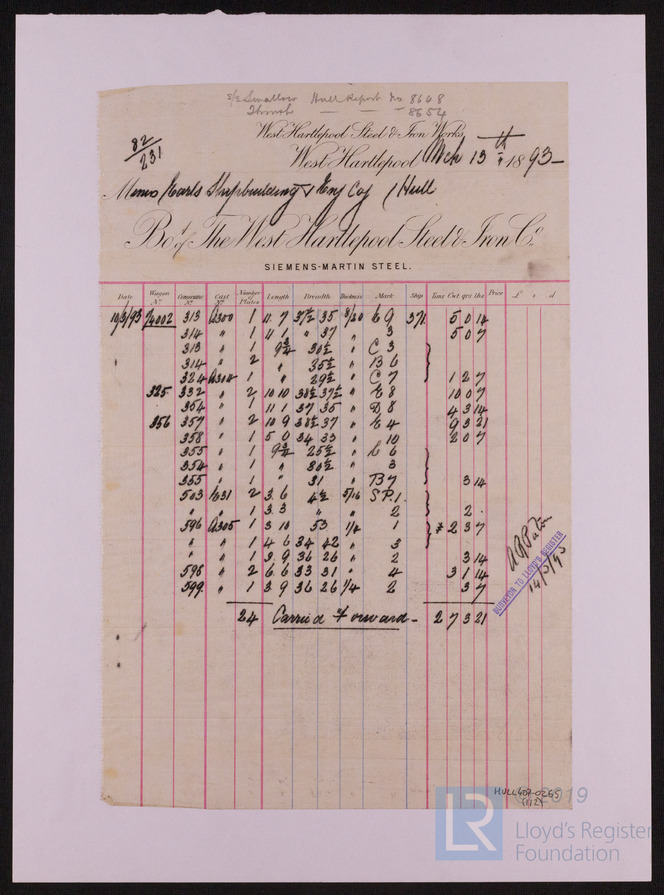 S/S Swallow Hull Report No 8648
Thrush — — 8654
82/231
West Hartlepool Steel & Iron Works,
West Hartlepool Mch 13th 1893-
Messrs Earls Shipbuilding & Eng Coy / Hull
Bot. of The West Hartlepool Steel & Iron Co.
SIEMENS-MARTIN STEEL.
Date Wagon No. Consecutive No. Cast No. Number of Plates Length Breadth Thickness Mark Ship Tons Cwt. qrs lbs Price £ s d
10/3/93 4002 313 A300 1 11 7 37½ 35 8/20 E 9 371 5 0 14
314 " 1 11 1 " 37 " 3 5 0 7
313 " 1 9¾ 30½ " C 3
314 " 2 " 35½ " B 6
324 A304 1 " 29½ " C 7 1 2 7
325 332 " 2 10 10 38½ 37½ " E 8 10 0 7
354 " 1 11 1 37 35 " D 8 4 3 14
356 357 " 2 10 9 38½ 37 " E 4 9 3 21
358 " 1 5 0 34 33 " 10 2 0 7
355 " 1 9¾ 25½ " C 6
354 " 1 " 30½ " 3
355 " 1 " 31 " B 7 3 14
503 631 2 3 6 4½ 5/16 S P.1.
" " 1 3 3 " " 2 2 .
596 A305 1 3 10 53 1/4 1 2 3 7
" " 1 4 6 34 42 " 3
" " 1 3 9 36 26 " 2 3 14
598 " 2 6 6 33 31 " 4 3 1 14
599 " 1 3 9 36 26 1/4 2 3 7
24 Carried Forward - 2 7 3 21
SURVEYOR TO LLOYD'S REGISTER
14/3/93
HULL607-0265
(1/2)
© 2019
LR
Lloyd's Register
Foundation